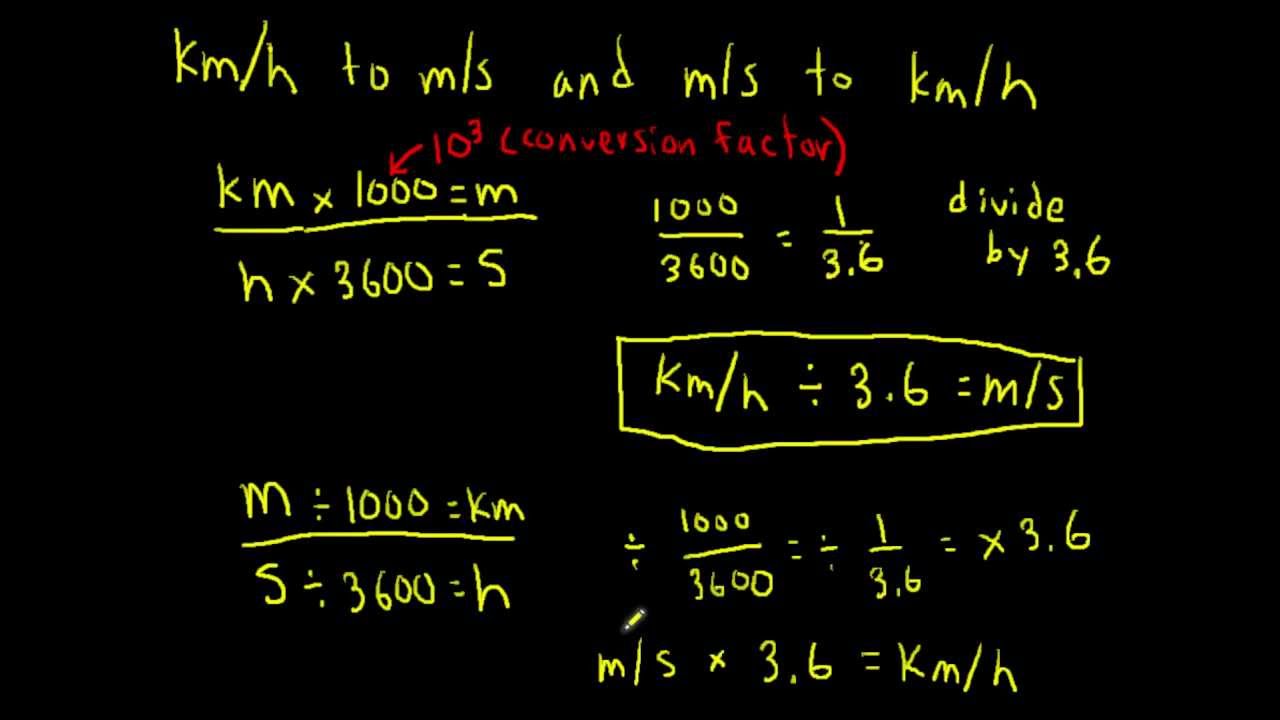 km/h to m/s and m/s to km/h
10³ (conversion factor)
km × 1000 = m
h × 3600 = s
1000/3600 = 1/3.6
divide
by 3.6
km/h ÷ 3.6 = m/s
m ÷ 1000 = km
s ÷ 3600 = h
÷ 1000/3600 = ÷ 1/3.6 = × 3.6
m/s × 3.6 = km/h